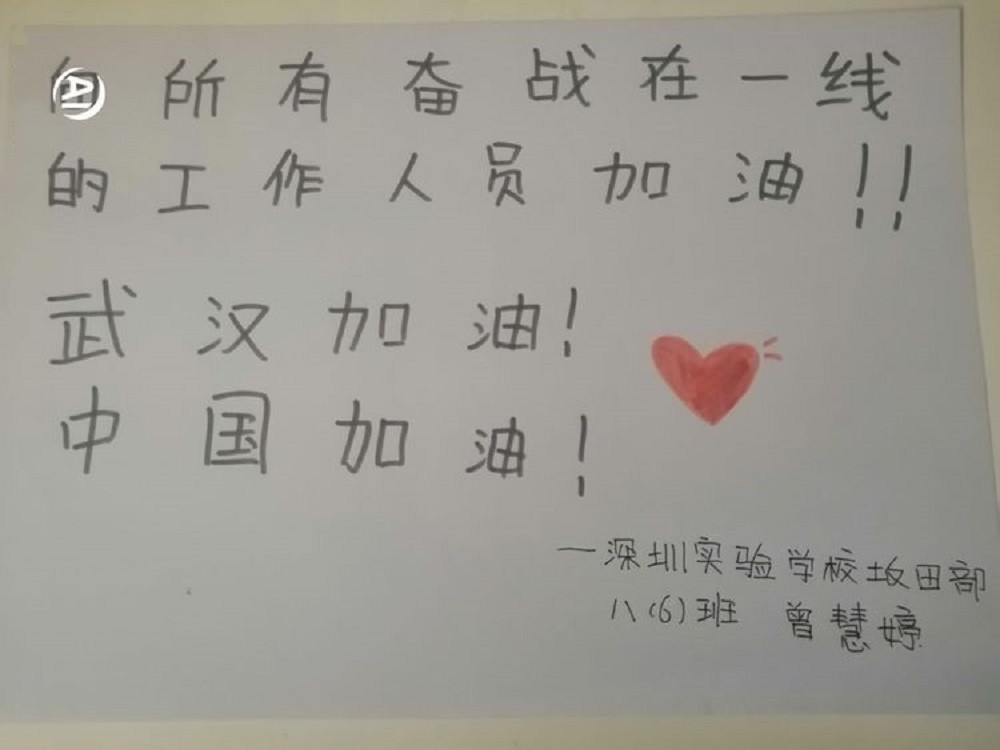 向所有奋战在一线
的工作人员加油!!
武汉加油!
中国加油!
—深圳实验学校坂田部
八(6)班 曾慧婷